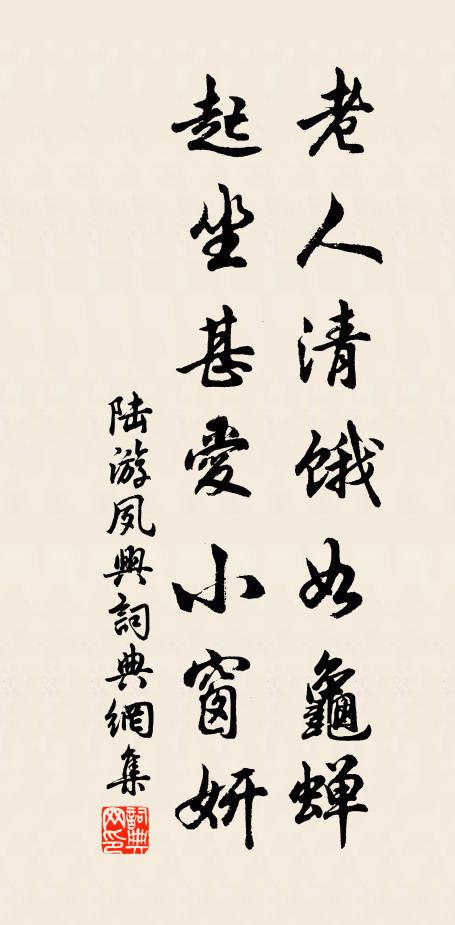 老人清餓如龜蟬
起坐甚愛小窗妍
陆游夙興詞典網集
詞典网印